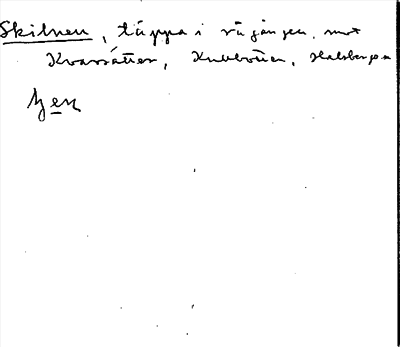 Skilnen, täppa i rågången mot
Kvarsätter, Kubbotten, Halsberga